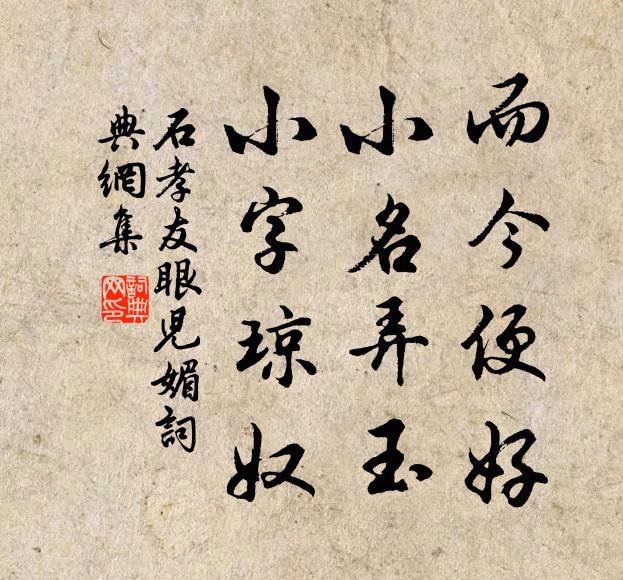 而今便好
小名弄玉
小字琼奴
石孝友眼児媚詞
典網集
詞典
网印